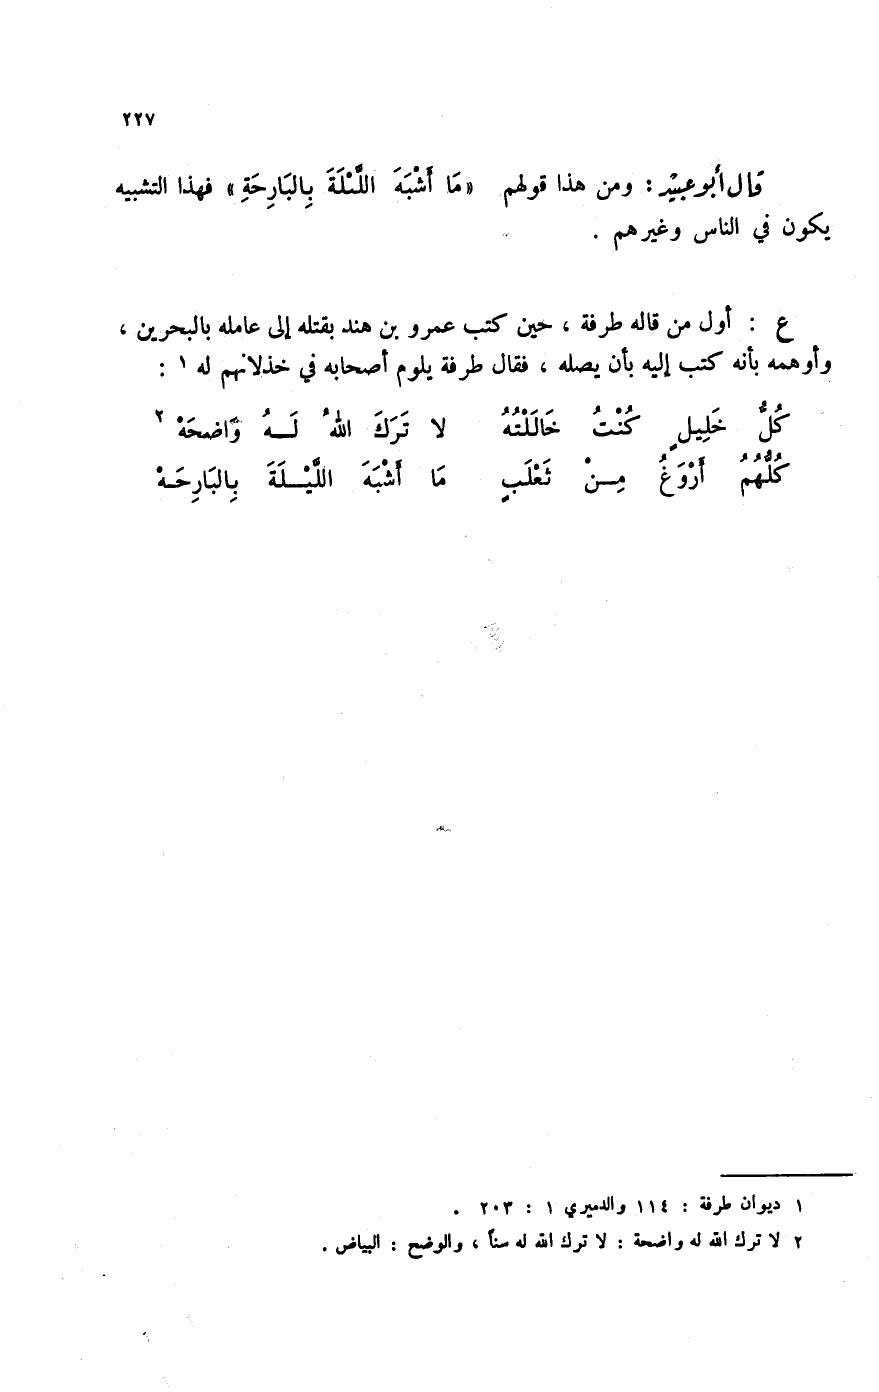 ٢٢٧
قال أبو عبيد : ومن هذا قولهم «مَا أَشْبَهَ اللَّيْلَةَ بِالبَارِحَةِ» فهذا التشبيه
يكون في الناس وغيرهم .
ع : أول من قاله طرفة ، حين كتب عمرو بن هند بقتله إلى عامله بالبحرين ،
وأوهمه بأنه كتب إليه بأن يصله ، فقال طرفة يلوم أصحابه في خذلانهم له ١ :
كُلُّ خَلِيلٍ كُنْتُ خَالَلْتُهُ لا تَرَكَ اللهُ لَـهُ وَاضحَهْ ٢
كُلُّهُمُ أَرْوَغُ مِـنْ ثَعْلَبٍ مَا أَشْبَهَ اللَّيْـلَةَ بِالبَارِحَـهْ
١ ديوان طرفة : ١١٤ والدميري ١ : ٢٠٣ .
٢ لا ترك الله له واضحة : لا ترك الله له سناً ، والوضح : البياض .